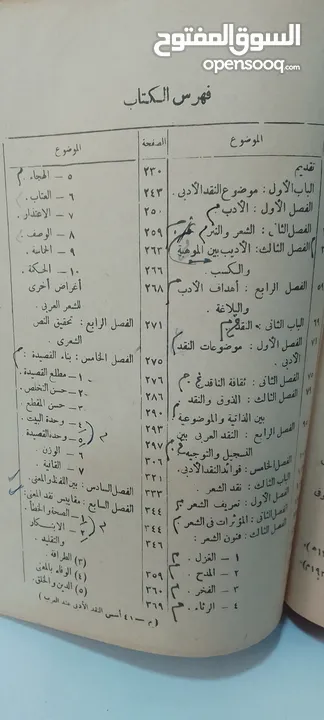 السوق المفتوح
opensooq.com
فهرس الكتاب
الموضوع
تقديم
الباب الأول : موضوع النقد الأدبى .
الفصل الأول : الأدب
الفصل الثانى : الشعر والنثر
الفصل الثالث : الأديب بين الموهبة
والكسب .
الفصل الرابع : أهداف الأدب
والبلاغة .
الباب الثانى : النقد
الفصل الأول : موضوعات النقد
الأدبى .
الفصل الثانى : ثقافة الناقد
الفصل الثالث : الذوق والنقد
بين الذاتية والموضوعية
الفصل الرابع : النقد العربى بين
التسجيل والتوجيه
الفصل الخامس : فوائد النقد الأدبى .
الباب الثالث : نقد الشعر .
الفصل الأول : تعريف الشعر
الفصل الثانى : المؤثرات فى الشعر
الفصل الثالث : فنون الشعر :
١ – الغزل .
٢ – المدح .
٣ – الفخر .
٤ – الرثاء .
الصفحة
٢٣٠
٢٤٣
٢٥٠
٢٥٩
٢٦٣
٢٦٦
٢٦٨
٢٧١
٢٧٥
٢٧٦
٢٨٦
٢٩٠
٢٩٣
٢٩٧
٣٠٦
٣٢١
٣٣٣
٣٤٤
٣٤٤
٣٤٦
٣٥٩
٣٦٠
٣٦٩
الموضوع
٥ – الهجاء .
٦ – العتاب .
٧ – الاعتذار .
٨ – الوصف .
٩ – الحماسة .
١٠ – الحكمة .
أغراض أخرى
للشعر العربى .
الفصل الرابع : تحقيق النص
الشعرى .
الفصل الخامس : بناء القصيدة :
١ – مطلع القصيدة .
٢ – حسن التخلص .
٣ – حسن المقطع .
٤ – وحدة البيت .
٥ – وحدة القصيدة
٦ – الوزن .
٧ – القافية .
الفصل السادس : بين اللفظ والمعنى .
الفصل السابع : مقاييس نقد المعنى :
١ – الصحة والخطأ .
٢ – الابتكار
والتقليد .
(٣) الطرافة .
(٤) الوفاء بالمعنى
(٥) الدين والخلق .
(م – ٤١ أسس النقد الأدبى عند العرب)